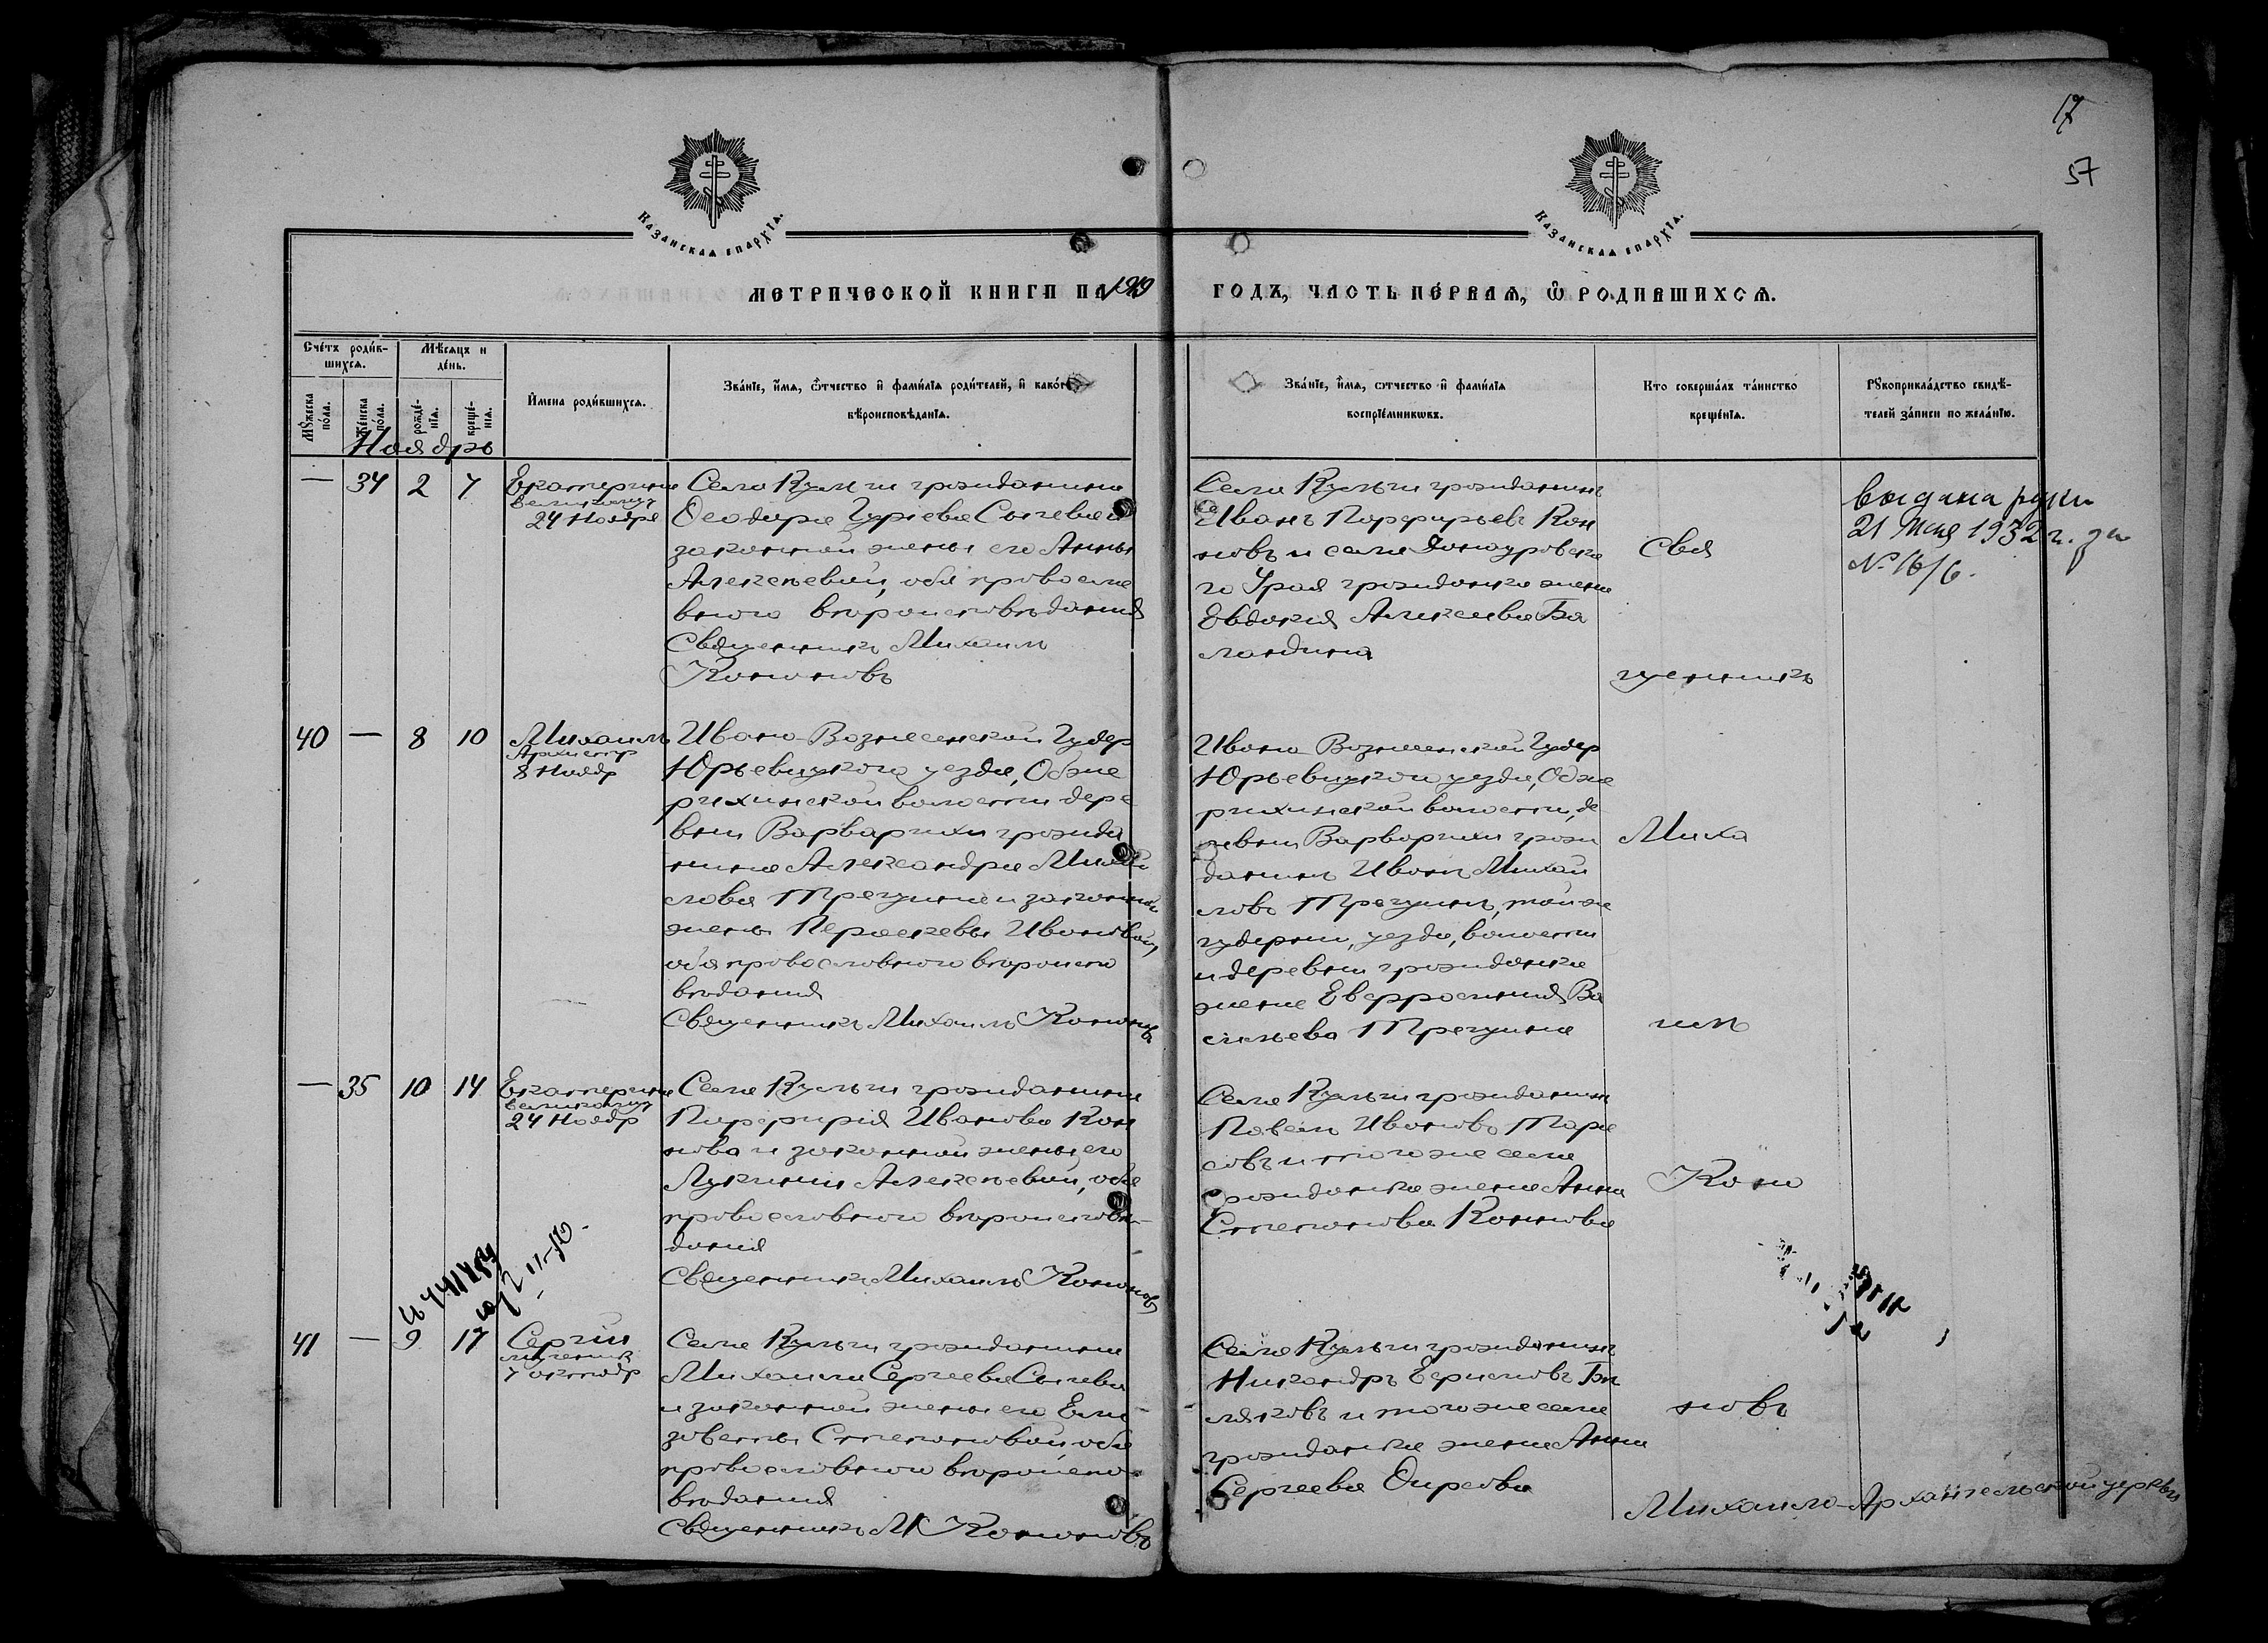 17
57
КАЗАНСКАЯ ЕПАРХІЯ.
КАЗАНСКАЯ ЕПАРХІЯ.
МЕТРИЧЕСКОЙ КНИГИ НА 1919
ГОДЪ, ЧАСТЬ ПЕ́РВАЯ, Ѿ РОДИВШИХСЯ.
Сче́тъ роди́в-
шихся.
Мѣ́сяцъ и
де́нь.
Му́жеска
по́ла.
Же́нска
по́ла.
рожде́-
нїя.
креще́-
нїя.
И҆мена роди́вшихся.
Зва́нїе, и҆́мя, ѻ҆́тчество и҆ фами́лїя роди́телей, и҆ како́гѡ
вѣроисповѣ́данїя.
Зва́нїе, и҆́мя, ѻ҆́тчество и҆ фами́лїя
воспрїе́мникѡвъ.
Кто соверша́лъ та́инство
креще́нїя.
Рꙋкоприкла́дство свидѣ́-
телей за́писи по жела́нїю.
Ноябрь
— 34 2 7
Екатерина
великомуч
24 Ноября
Села Кульги гражданина
Ѳеодора Гуріева Сычева и
законной жены его Анны
Алексѣевой, оба правосла
внаго вѣроисповѣданія
Священникъ Михаилъ
Кононовъ
Села Кульги гражданинъ
Иванъ Порфирьевъ Кон
новъ и села
го Урая гражданка жена
Евдокия Алексѣева Ба
ландина
Свя
щенникъ
выдана
21 Мая 1932 г. за
№ 16/6.
40 — 8 10
Михаилъ
Архистр
8 Ноябр
Ивано-Вознесенской Губер
Юрьевецкого уезда, Обже
рихинской волости дере
вни Варварихи гражда
нина Александра Михай
лова Трегубина и законной
жены Параскевы Ивановой,
оба православного вѣроиспо
вѣданія
Священникъ Михаилъ Кононовъ
Ивано-Вознесенской Губер
Юрьевецкой уезда, Обже
рихинской волости, де
ревни Варварихи граж
данинъ Иванъ Михай
ловъ той же
губернии, уезда, волости
и деревни гражданка
жена Евфросиния Ва
сильева
Миха
илъ
— 35 10 14
Екатерина
великомуч
24 Ноябр
Села Кульги гражданина
Порфирія Иванова Кон
нова и законной жены его
Лукиныи Алексѣевой, оба
православного вѣроисповѣ-
данія
Священникъ Михаилъ Кононовъ
Села Кульги гражданин
Павелъ Ивановъ Тара
совъ и того же села
гражданка жена Анна
Степанова Коннова
Коно
41 — 9 17
Сергій
мученик
7 октябр
Села Кульги гражданина
Михаила Сергеева Сычева
и законной жены его Ели
заветы Степановой оба
православного вѣроиспо-
вѣданія
Священникъ М Кононовъ
Села Кульги гражданинъ
Никандръ
ляковъ и того же села
гражданка жена Анна
Сергеева
новъ
Михаило-Архангельской церкви